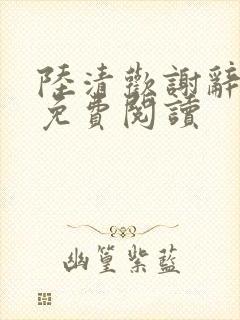 陸清歡謝辭
免費閱讀
幽篁紫藍